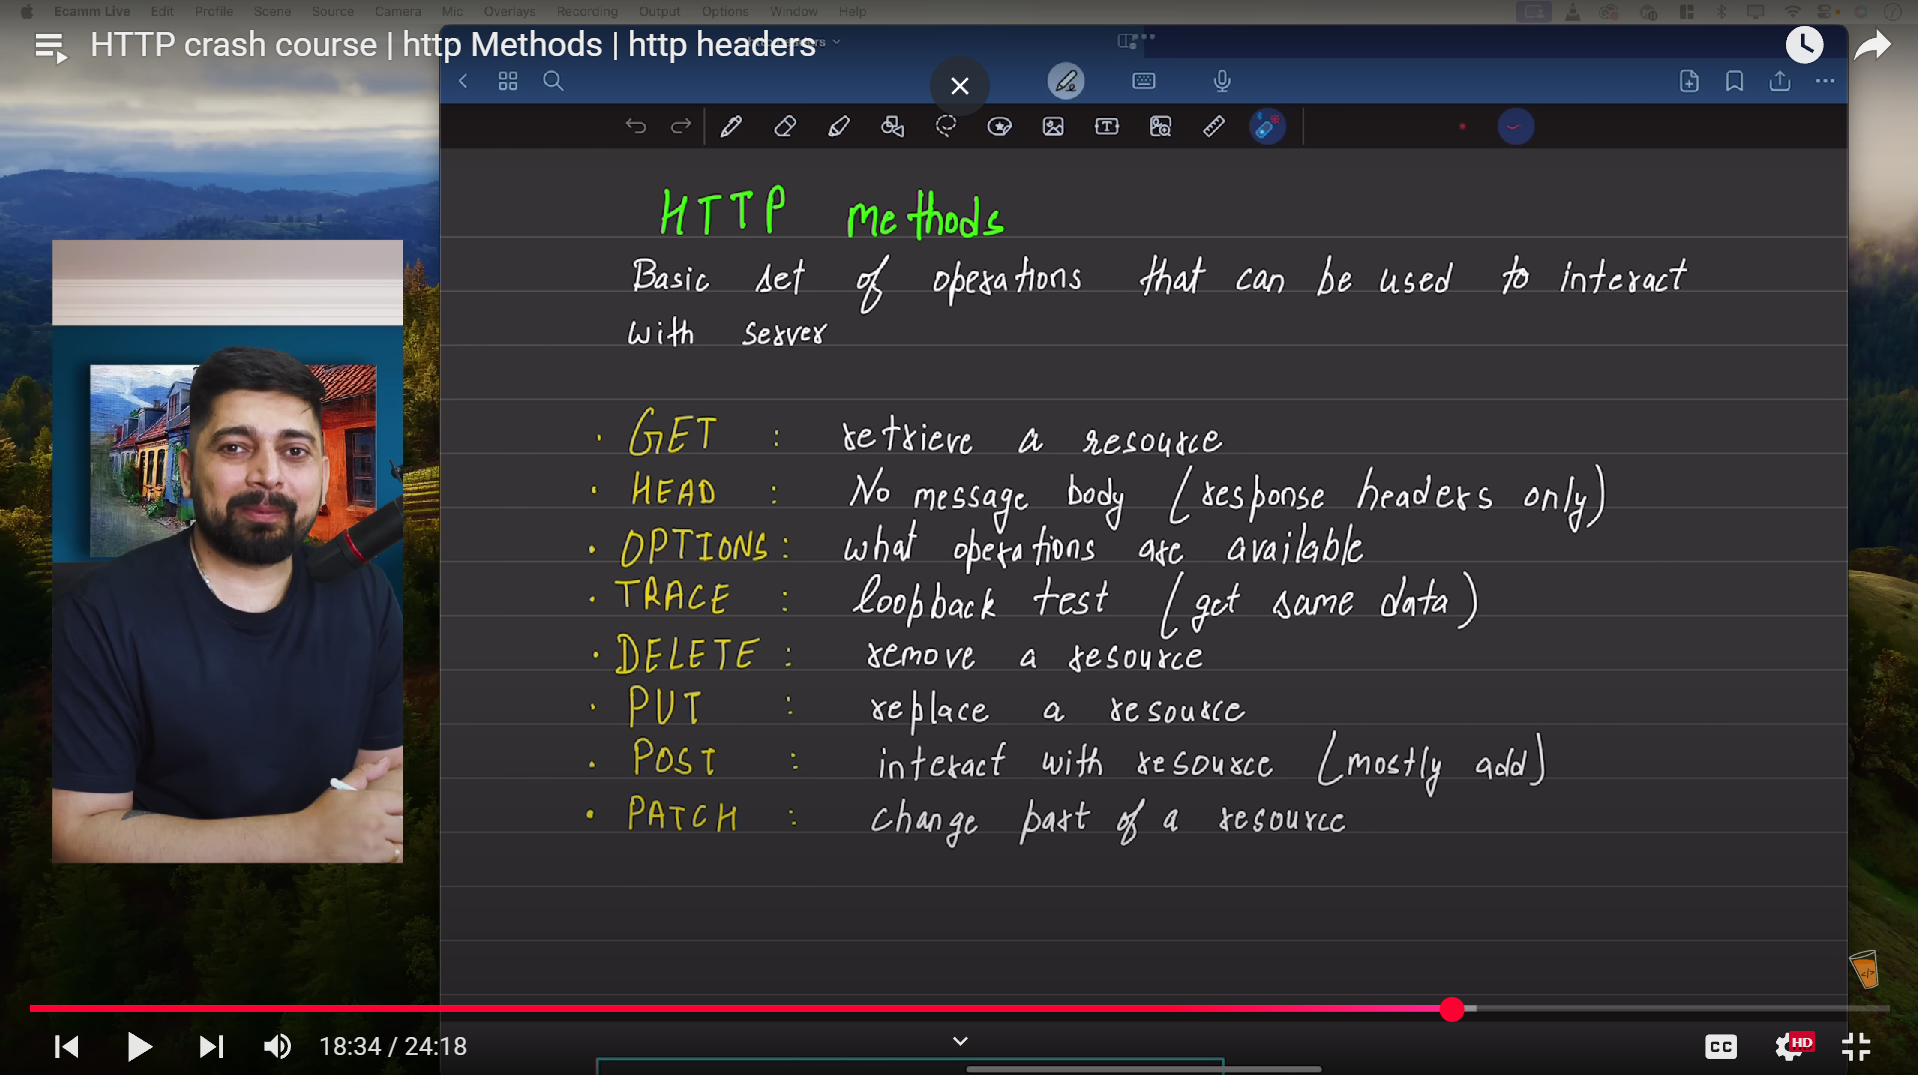 Ecamm Live Edit Profile Scene Source Camera Mic Overlays Recording Output Options Window Help
HTTP crash course | http Methods | http headers
HTTP Methods
Basic set of operations that can be used to interact
with server
· GET : retrieve a resource
· HEAD : No message body (response headers only)
· OPTIONS : what operations are available
· TRACE : loopback test (get same data)
· DELETE : remove a resource
· PUT : replace a resource
· POST : interact with resource (mostly add)
· PATCH : change part of a resource
</>
18:34 / 24:18
CC HD